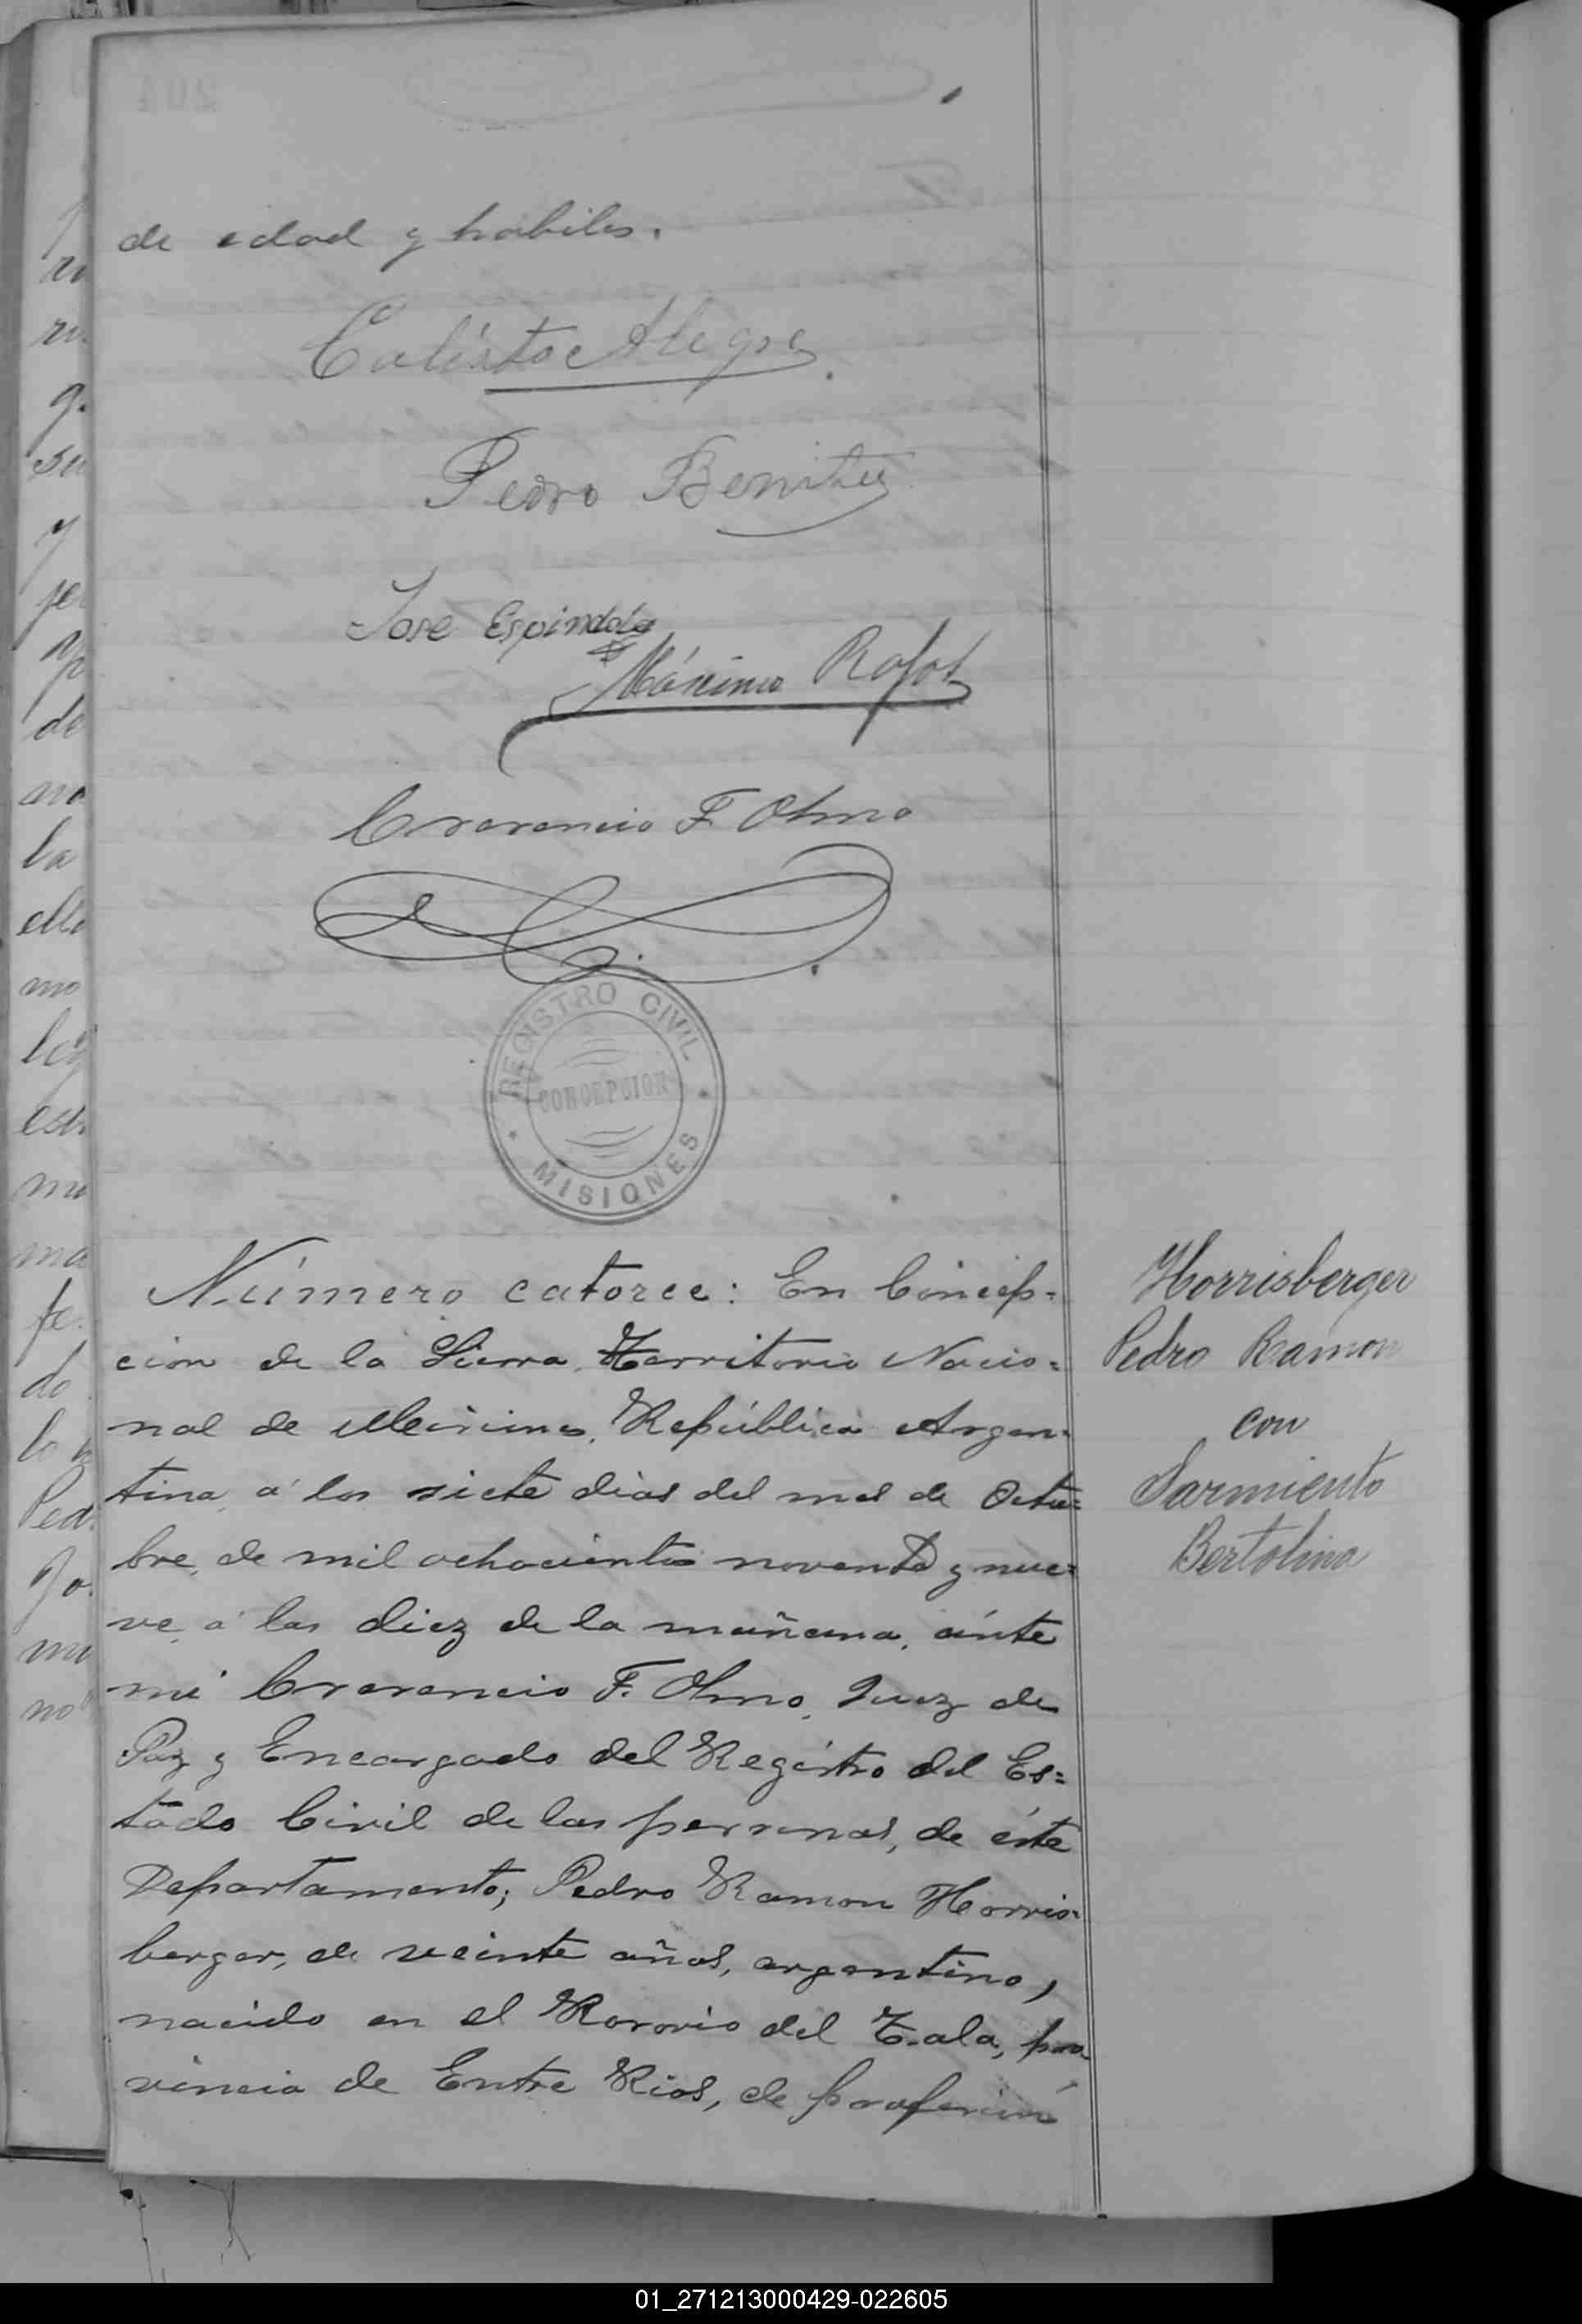 de edad y habiles.
Calixto Alegre
Pedro Benitez
Jose Espindola
Máximo
F. Olmo
REGISTRO CIVIL
CONCEPCION
MISIONES
Número catorce: En Concep=
cion de la Sierra, Territorio Nacio=
nal de Misiones, República Argen=
tina, á los siete dias del mes de Octu=
bre, de mil ochocientos noventa y nue=
ve, á las diez de la mañana, ánte
mi F. Olmo, Juez de
Paz y Encargado del Registro del Es=
tado Civil de las personas, de éste
Departamento; Pedro Ramon Horris=
berger, de veinte años, argentino,
nacido en el Rosario del Tala, pro
vincia de Entre Rios, de profesión
Horrisberger
Pedro Ramon
con
Sarmiento
Bertolina
01_271213000429-022605